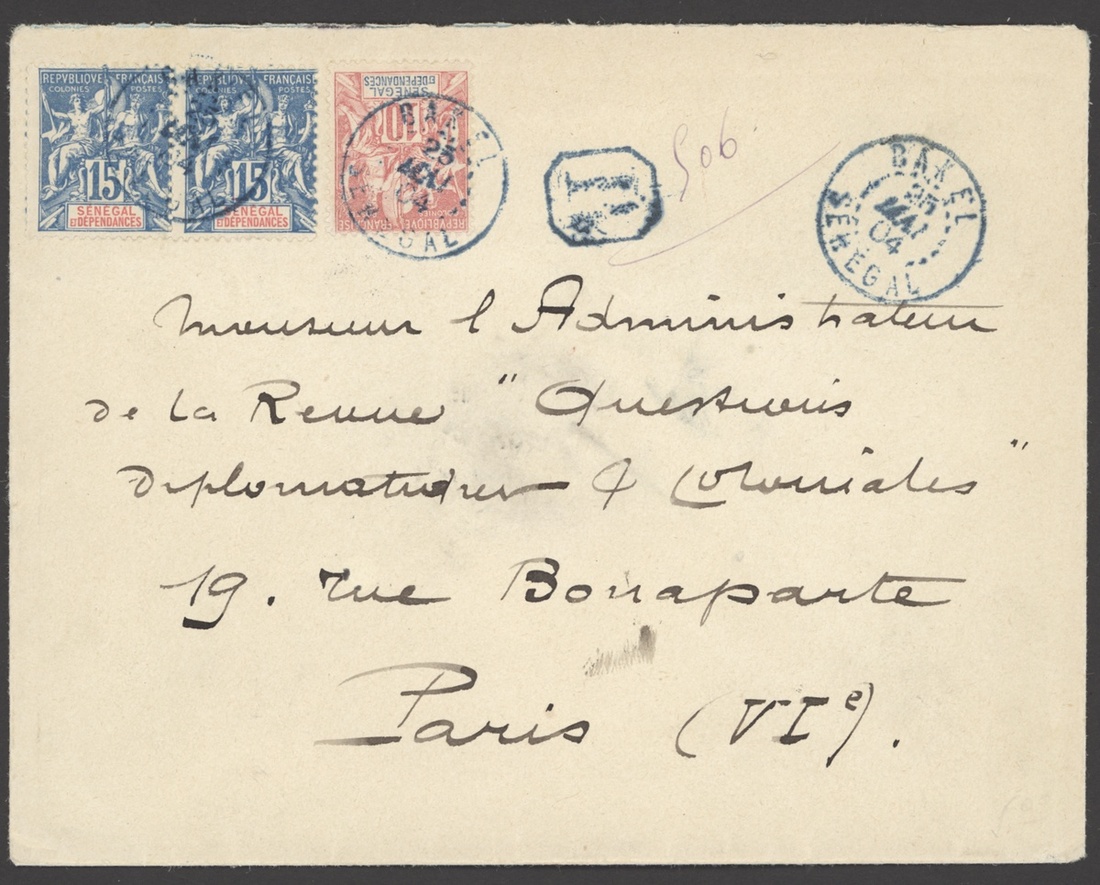 REPVBLIQVE FRANÇAISE
COLONIES POSTES
15
SÉNÉGAL
ET DÉPENDANCES
REPVBLIQVE FRANÇAISE
COLONIES POSTES
15
SÉNÉGAL
ET DÉPENDANCES
SÉNÉGAL
ET DÉPENDANCES
10
REPVBLIQVE FRANÇAISE
BAKEL
25
MAI
04
SENEGAL
R
506
BAKEL
25
MAI
04
SENEGAL
Monsieur l'Administrateur
de la Revue "Questions
diplomatiques & Coloniales"
19. rue Bonaparte
Paris (VIe).